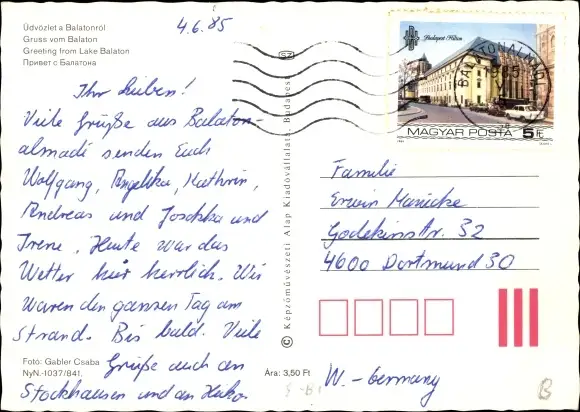 Üdvözlet a Balatonról
Gruss vom Balaton
Greeting from Lake Balaton
Привет с Балатона
4.6.85
Ihr Lieben!
Viele Grüße aus Balaton-
almadi senden Euch
Wolfgang, Angelika, Kathrin,
Andreas und Joschka und
Irene. Heute war das
Wetter hier herrlich. Wir
waren den ganzen Tag am
Strand. Bis bald. Viele
Grüße auch an
Stockhausen und an Heiko.
Foto: Gabler Csaba
NyN.-1037/841.
Ára: 3,50 Ft
SZ
© Képzőművészeti Alap Kiadóvállalata, Budapest
Budapest Hilton
MAGYAR POSTA 5 Ft
BALATONALMÁDI
1985
Familie
Erwin
Str. 32
4600 Dortmund 30
W.-Germany
B